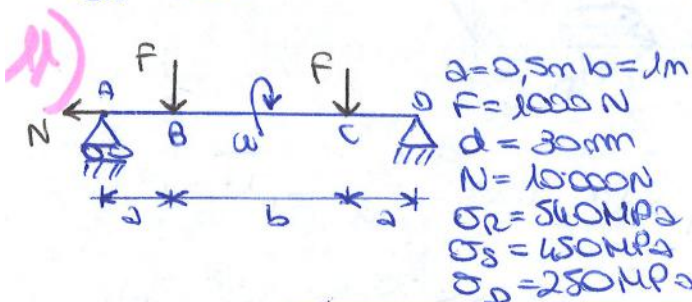 4)
F F
A D
N B ω C
a b a
a=0,5m b=1m
F=1000N
d=30mm
N=10000N
σR=540MPa
σS=450MPa
σD=250MPa